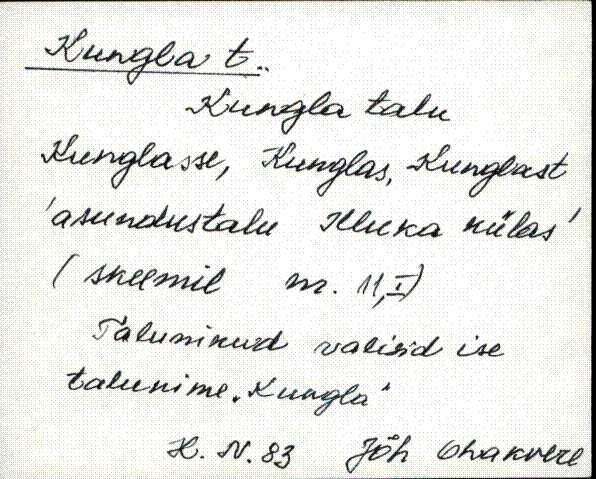 Kungla t..
Kungla talu
Kunglasse, Kunglas, Kunglast
'asundustalu Illuka külas'
(skeemil nr. 11, I)
Talunikud valisid ise
talunime „Kungla"
H. N. 83 Jõh